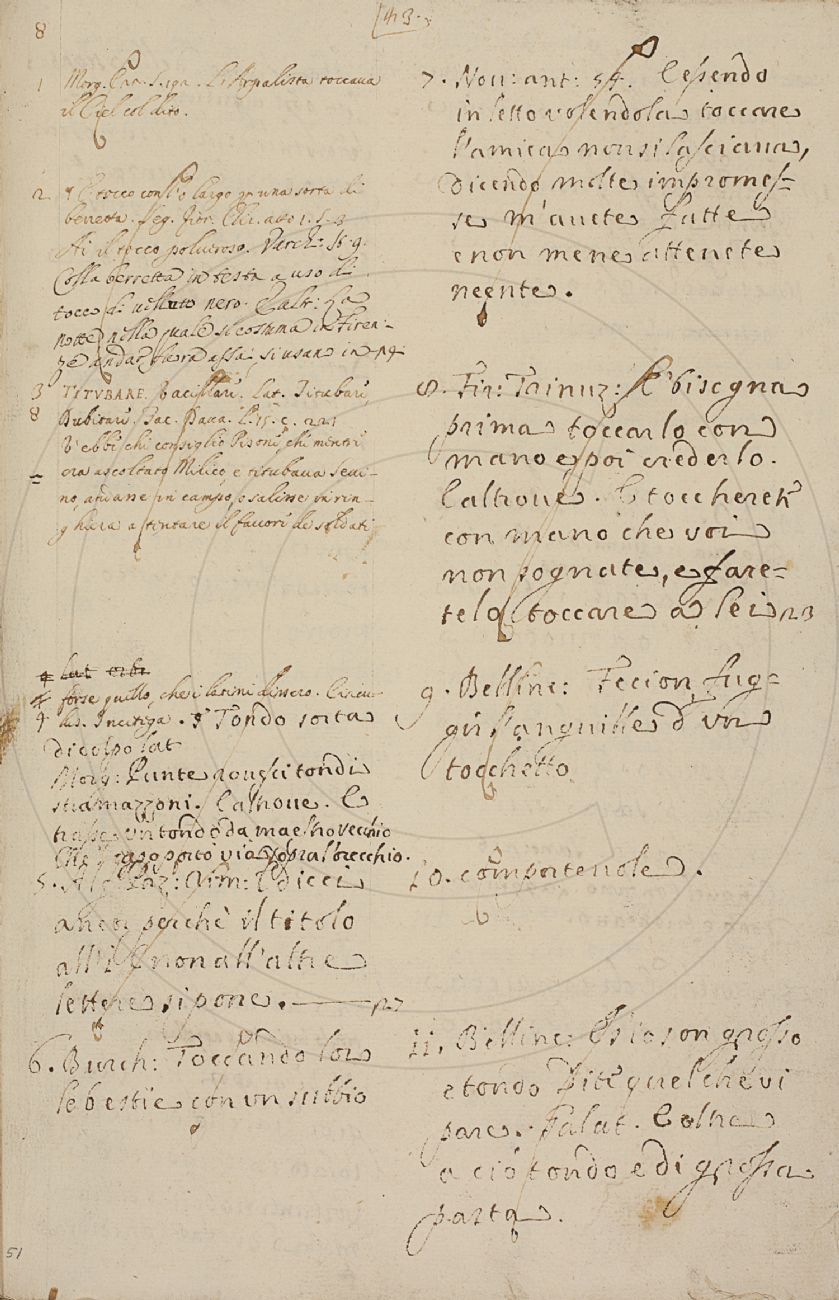 8
143.
1 Morg. Can. S. 190. L'Arpalista toccava
il Ciel col dito.
2. E tocco con l'o largo è una sorta di
berretta. Seg. Fior. Chi. atto 1. S. 3
Ai il tocco polveroso. Varch: St. 9.
Colla berretta in testa a uso di
tocco di velluto nero. E altr: La
notte nella quale si costuma in Firen-
ze andar fuora assai si usano in
3 TITUBARE. Vacillare. Lat. Titubare,
8 Dubitare. Tac. Dava. L. 15. c.
V'ebbe chi consigliò Pisone, che mentre
era ascoltato Milico, e titubava Sevi-
= no, andasse in campo, o salisse in rin-
ghiera a tentare il favore de soldati
lat
forse quello, che i latini dissero.
4 Tondo sorta
di colpo lat
Morg: Punte rovesci tondi
stramazzoni. Ealtrove. E
trasse un tondo da maestro vecchio
portò via sopra l'orecchio.
5. Edicci
anco perchè il titolo
all'i e non all'altre
lettere si pone.
6. Burch: Toccando lor
le bestie con un subbio
7. Nov: ant: 54. Essendo
in letto volendola toccare
l'amica non si lasciava,
Dicendo molte impromes-
se m'avete fatte
e non me ne attenete
neente.
8. Fir: Trinuz: E' bisogna
prima toccarlo con
mano e poi crederlo.
Ealtrove. E toccherete
con mano che voi
non sognate, e fare-
telo toccare a lei
9. Bellinc: Fecion fug-
gir l'anguille d'un
tocchetto
10. comportevole.
11. Bellinc: S'io son grosso
e tondo Dite quel che vi
pare. Salat. E oltre
a ciò tondo e di grossa
pasta.
51